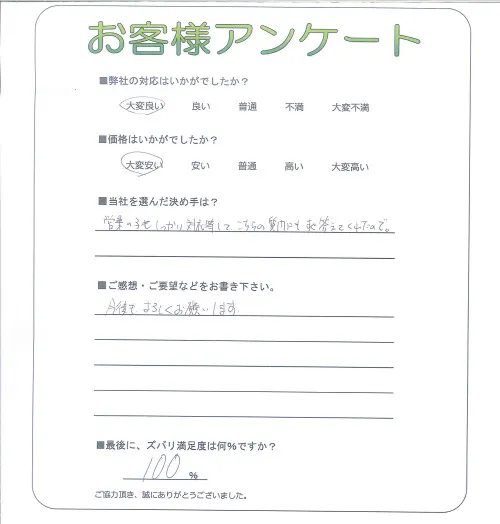 お客様アンケート
■弊社の対応はいかがでしたか？
大変良い 良い 普通 不満 大変不満
■価格はいかがでしたか？
大変安い 安い 普通 高い 大変高い
■当社を選んだ決め手は？
営業の しっかり対応 して、こちらの質問にも 答えてくれたので。
■ご感想・ご要望などをお書き下さい。
よろしくお願いします
■最後に、ズバリ満足度は何％ですか？
100 %
ご協力頂き、誠にありがとうございました。